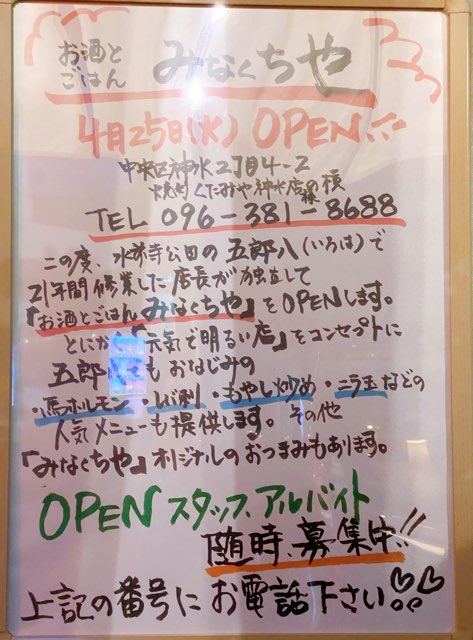 お酒と
ごはん みなくちや
4月25日(水) OPEN!!
中央区神水2丁目4-2
焼肉くたみや神水店様の横
TEL 096-381-8688
この度、水前寺公園の五郎八(いろは)で
21年間修業した店長が独立して
「お酒とごはん みなくちや」をOPENします。
とにかく「元気で明るい店」をコンセプトに
五郎八でもおなじみの
・馬ホルモン・レバ刺・もやし炒め・ニラ玉などの
人気メニューも提供します。その他
「みなくちや」オリジナルのおつまみもあります。
OPENスタッフ、アルバイト
随時、募集中!!
上記の番号にお電話下さい♡♡